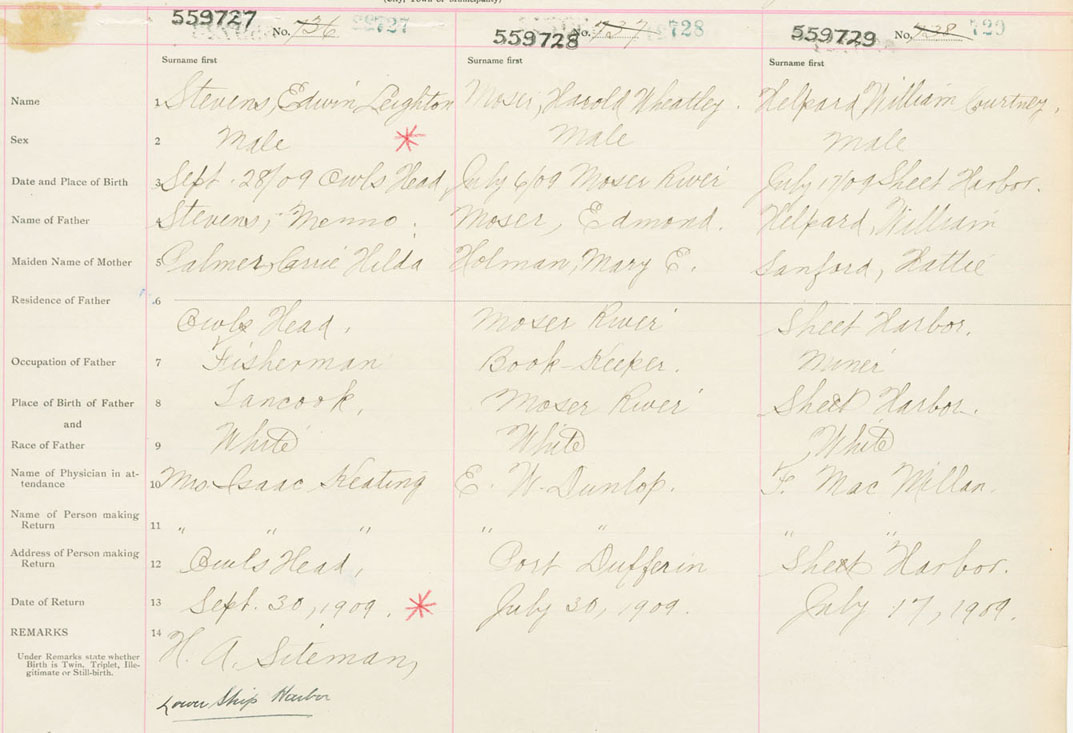 (City, Town or Municipality)
559727 No. 736 727
559728 No. 737 728
559729 No. 738 729
Surname first Surname first Surname first
Name 1 Stevens, Edwin Leighton Moser, Harold Wheatley. Helpard, William Courtney.
Sex 2 Male Male Male
Date and Place of Birth 3 Sept. 28/09 Owls Head July 6/09 Moser River July 17/09 Sheet Harbor.
Name of Father 4 Stevens, Menno Moser, Edmond. Helpard, William
Maiden Name of Mother 5 Palmer, Carrie Hilda Holman, Mary E. Sanford, Hattie
Residence of Father 6
Owls Head, Moser River Sheet Harbor.
Occupation of Father 7 Fisherman Book-Keeper. Miner
Place of Birth of Father 8 Tancook, Moser River Sheet Harbor.
and
Race of Father 9 White White White
Name of Physician in at-
tendance 10 Mrs Isaac Keating E. W. Dunlop. F. MacMillan.
Name of Person making
Return 11 " " " " " " "
Address of Person making
Return 12 Owls Head, Port Dufferin Sheet Harbor.
Date of Return 13 Sept. 30, 1909. July 30, 1909. July 17, 1909.
REMARKS 14 H. A. Siteman,
Under Remarks state whether
Birth is Twin, Triplet, Ille-
gitimate or Still-birth.
Lower Ship Harbor